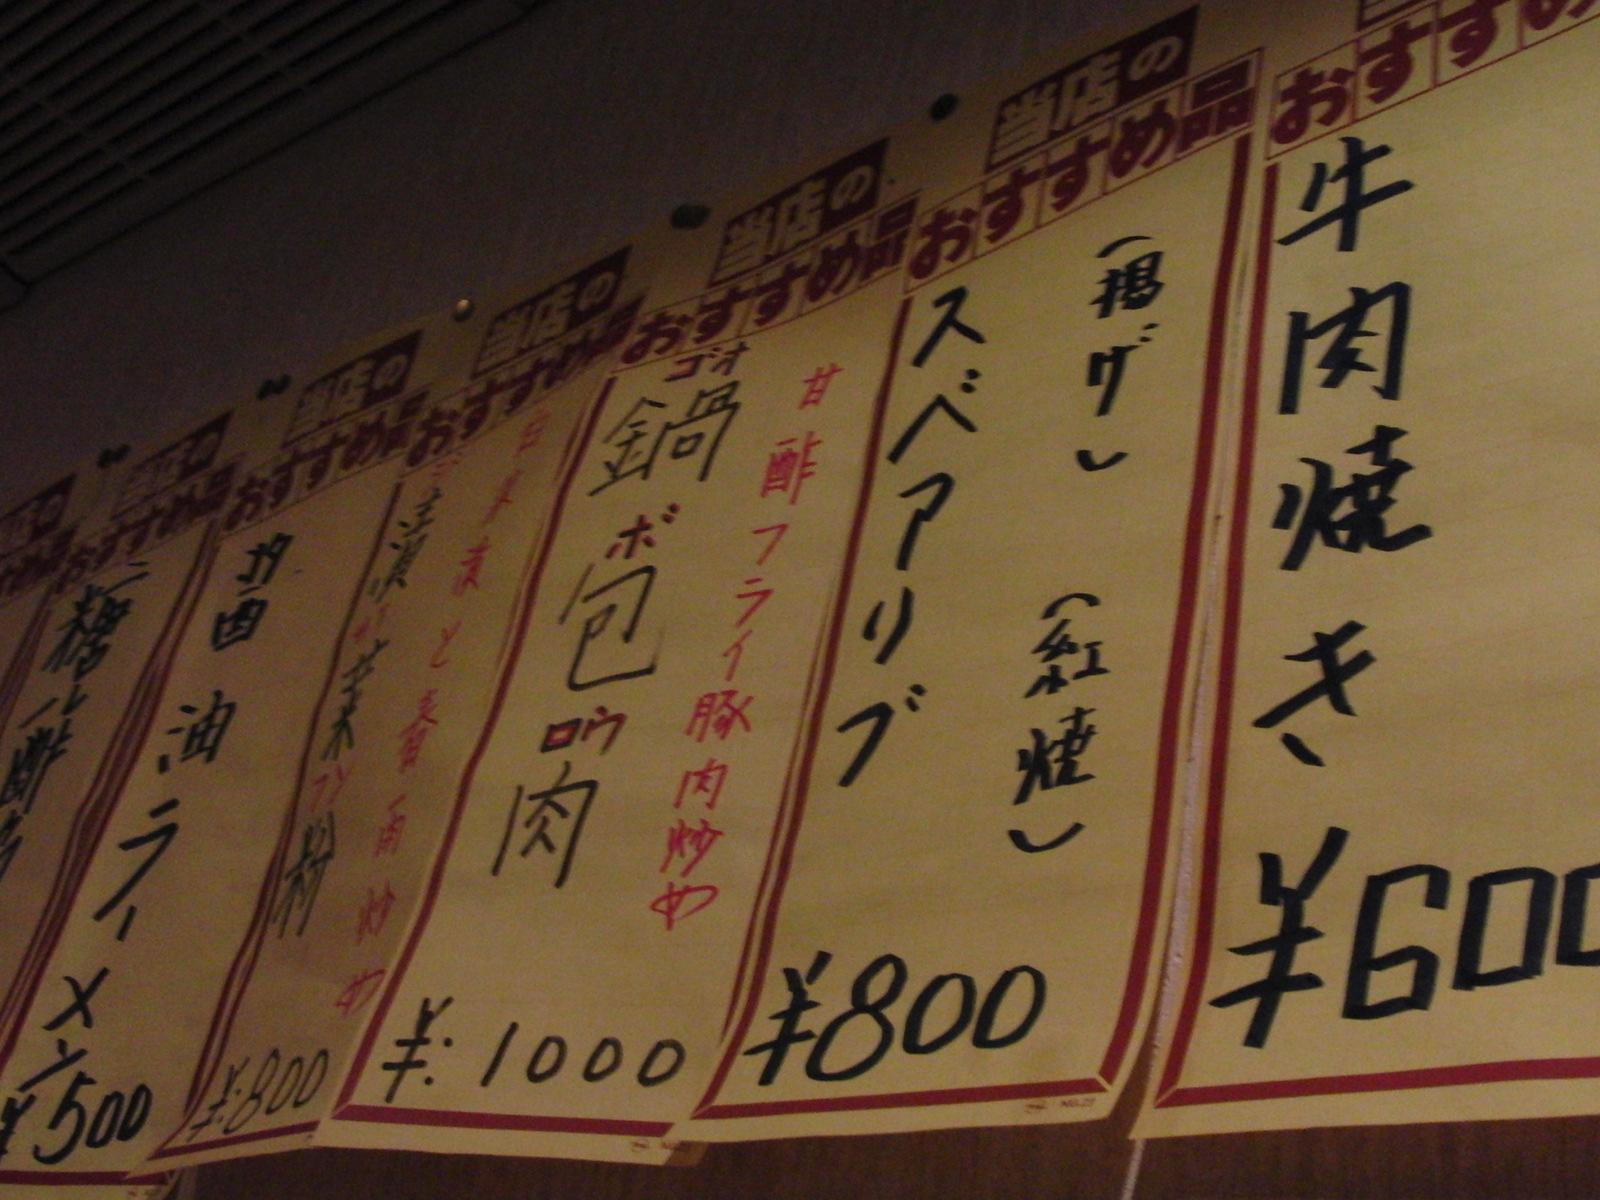 おすすめ
牛肉焼き
¥600
当店の
おすすめ品
(揚げ)
(紅焼)
スペアリブ
¥800
当店の
おすすめ品
甘酢フライ豚肉炒め
ゴオ ボ ロウ
鍋包肉
¥:1000
当店の
おすすめ品
漬菜粉
¥:800
当店の
おすすめ品
醤油ラーメン
¥500
当店の
おすすめ品